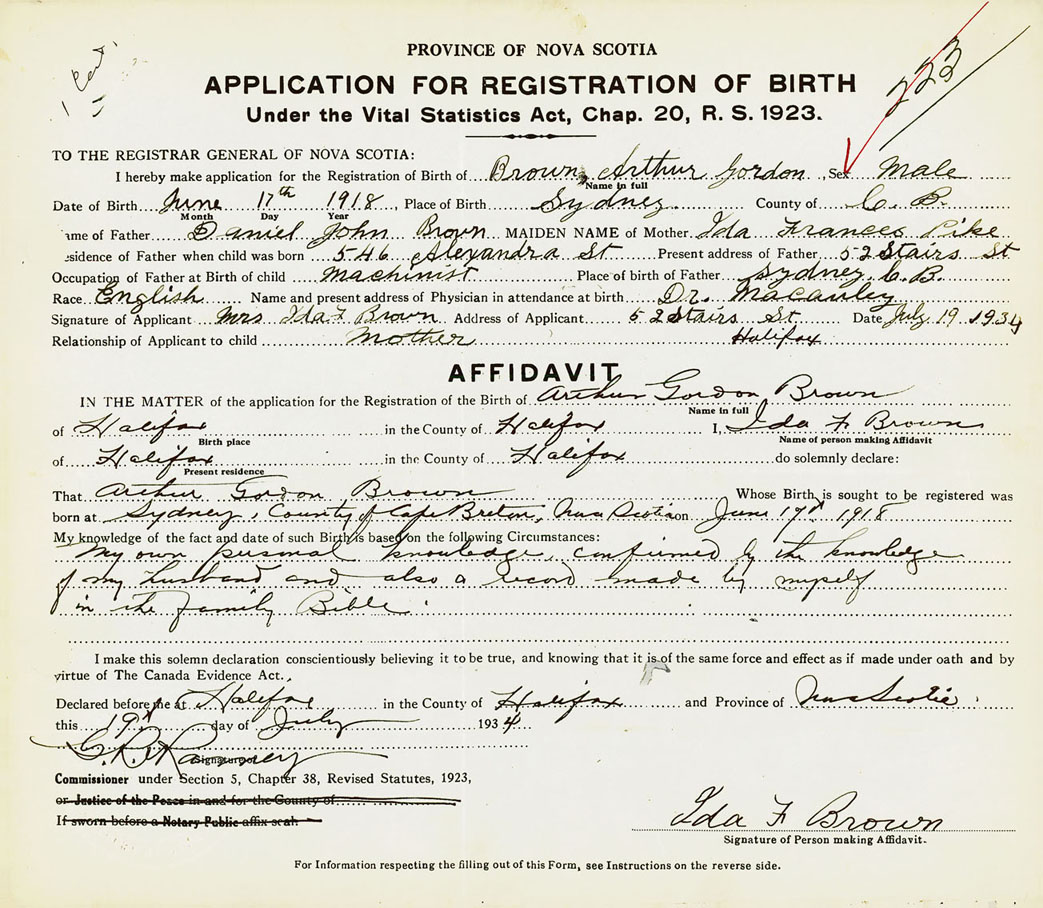 223
PROVINCE OF NOVA SCOTIA
APPLICATION FOR REGISTRATION OF BIRTH
Under the Vital Statistics Act, Chap. 20, R. S. 1923.
TO THE REGISTRAR GENERAL OF NOVA SCOTIA:
I hereby make application for the Registration of Birth of Brown, Arthur Gordon, Sex Male
Name in full
Date of Birth June 17th 1918, Place of Birth Sydney County of C. B.
Month Day Year
ame of Father Daniel John Brown MAIDEN NAME of Mother Ida Frances Pike
esidence of Father when child was born 546 Alexandra St Present address of Father 52 Stairs St
Occupation of Father at Birth of child Machinist Place of birth of Father Sydney, C. B.
Race English Name and present address of Physician in attendance at birth Dr. Macauley
Signature of Applicant Mrs Ida F Brown Address of Applicant 52 Stairs St. Date July 19 1934
Relationship of Applicant to child Mother Halifax
AFFIDAVIT
IN THE MATTER of the application for the Registration of the Birth of Arthur Gordon Brown
Name in full
of Halifax in the County of Halifax I, Ida F Brown
Birth place Name of person making Affidavit
of Halifax in the County of Halifax do solemnly declare:
Present residence
That Arthur Gordon Brown Whose Birth is sought to be registered was
born at Sydney, County of Cape Breton, Nova Scotia on June 17th 1918
My knowledge of the fact and date of such Birth is based on the following Circumstances:
My own personal knowledge, confirmed by the knowledge
of my husband and also a record made by myself
in the family Bible.
I make this solemn declaration conscientiously believing it to be true, and knowing that it is of the same force and effect as if made under oath and by
virtue of The Canada Evidence Act.
Declared before me at Halifax in the County of Halifax and Province of Nova Scotia
this 19th day of July 1934
Signature of
Commissioner under Section 5, Chapter 38, Revised Statutes, 1923,
or Justice of the Peace in and for the County of
If sworn before a Notary Public affix seal.
Ida F Brown
Signature of Person making Affidavit.
For Information respecting the filling out of this Form, see Instructions on the reverse side.